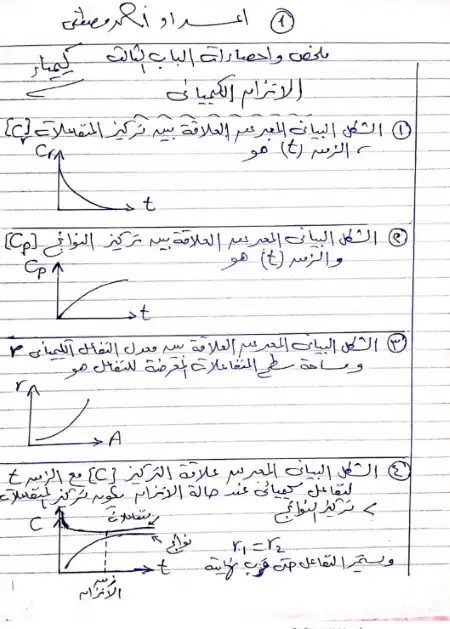 ① اعداد أ/محمد مصطفى
ملخص واختصارات الباب الثالث كيمياء
الاتزان الكيميائى
① الشكل البيانى المعبر عن العلاقة بين تركيز المتفاعلات [Cr]
، الزمن (t) هو
Cr
t
② الشكل البيانى المعبر عن العلاقة بين تركيز النواتج [Cp]
والزمن (t) هو
Cp
t
③ الشكل البيانى المعبر عن العلاقة بين معدل التفاعل الكيميائى r
ومساحة سطح المتفاعلات المعرضة للتفاعل هو
r
A
④ الشكل البيانى المعبر عن علاقة التركيز [C] مع الزمن t
لتفاعل كيميائى عند حالة الاتزان يكون تركيز المتفاعلات
> تركيز النواتج
C
متفاعلات
نواتج
r₁ = r₂
t
ويستمر التفاعل حتى قرب نهايته
زمن
الاتزان